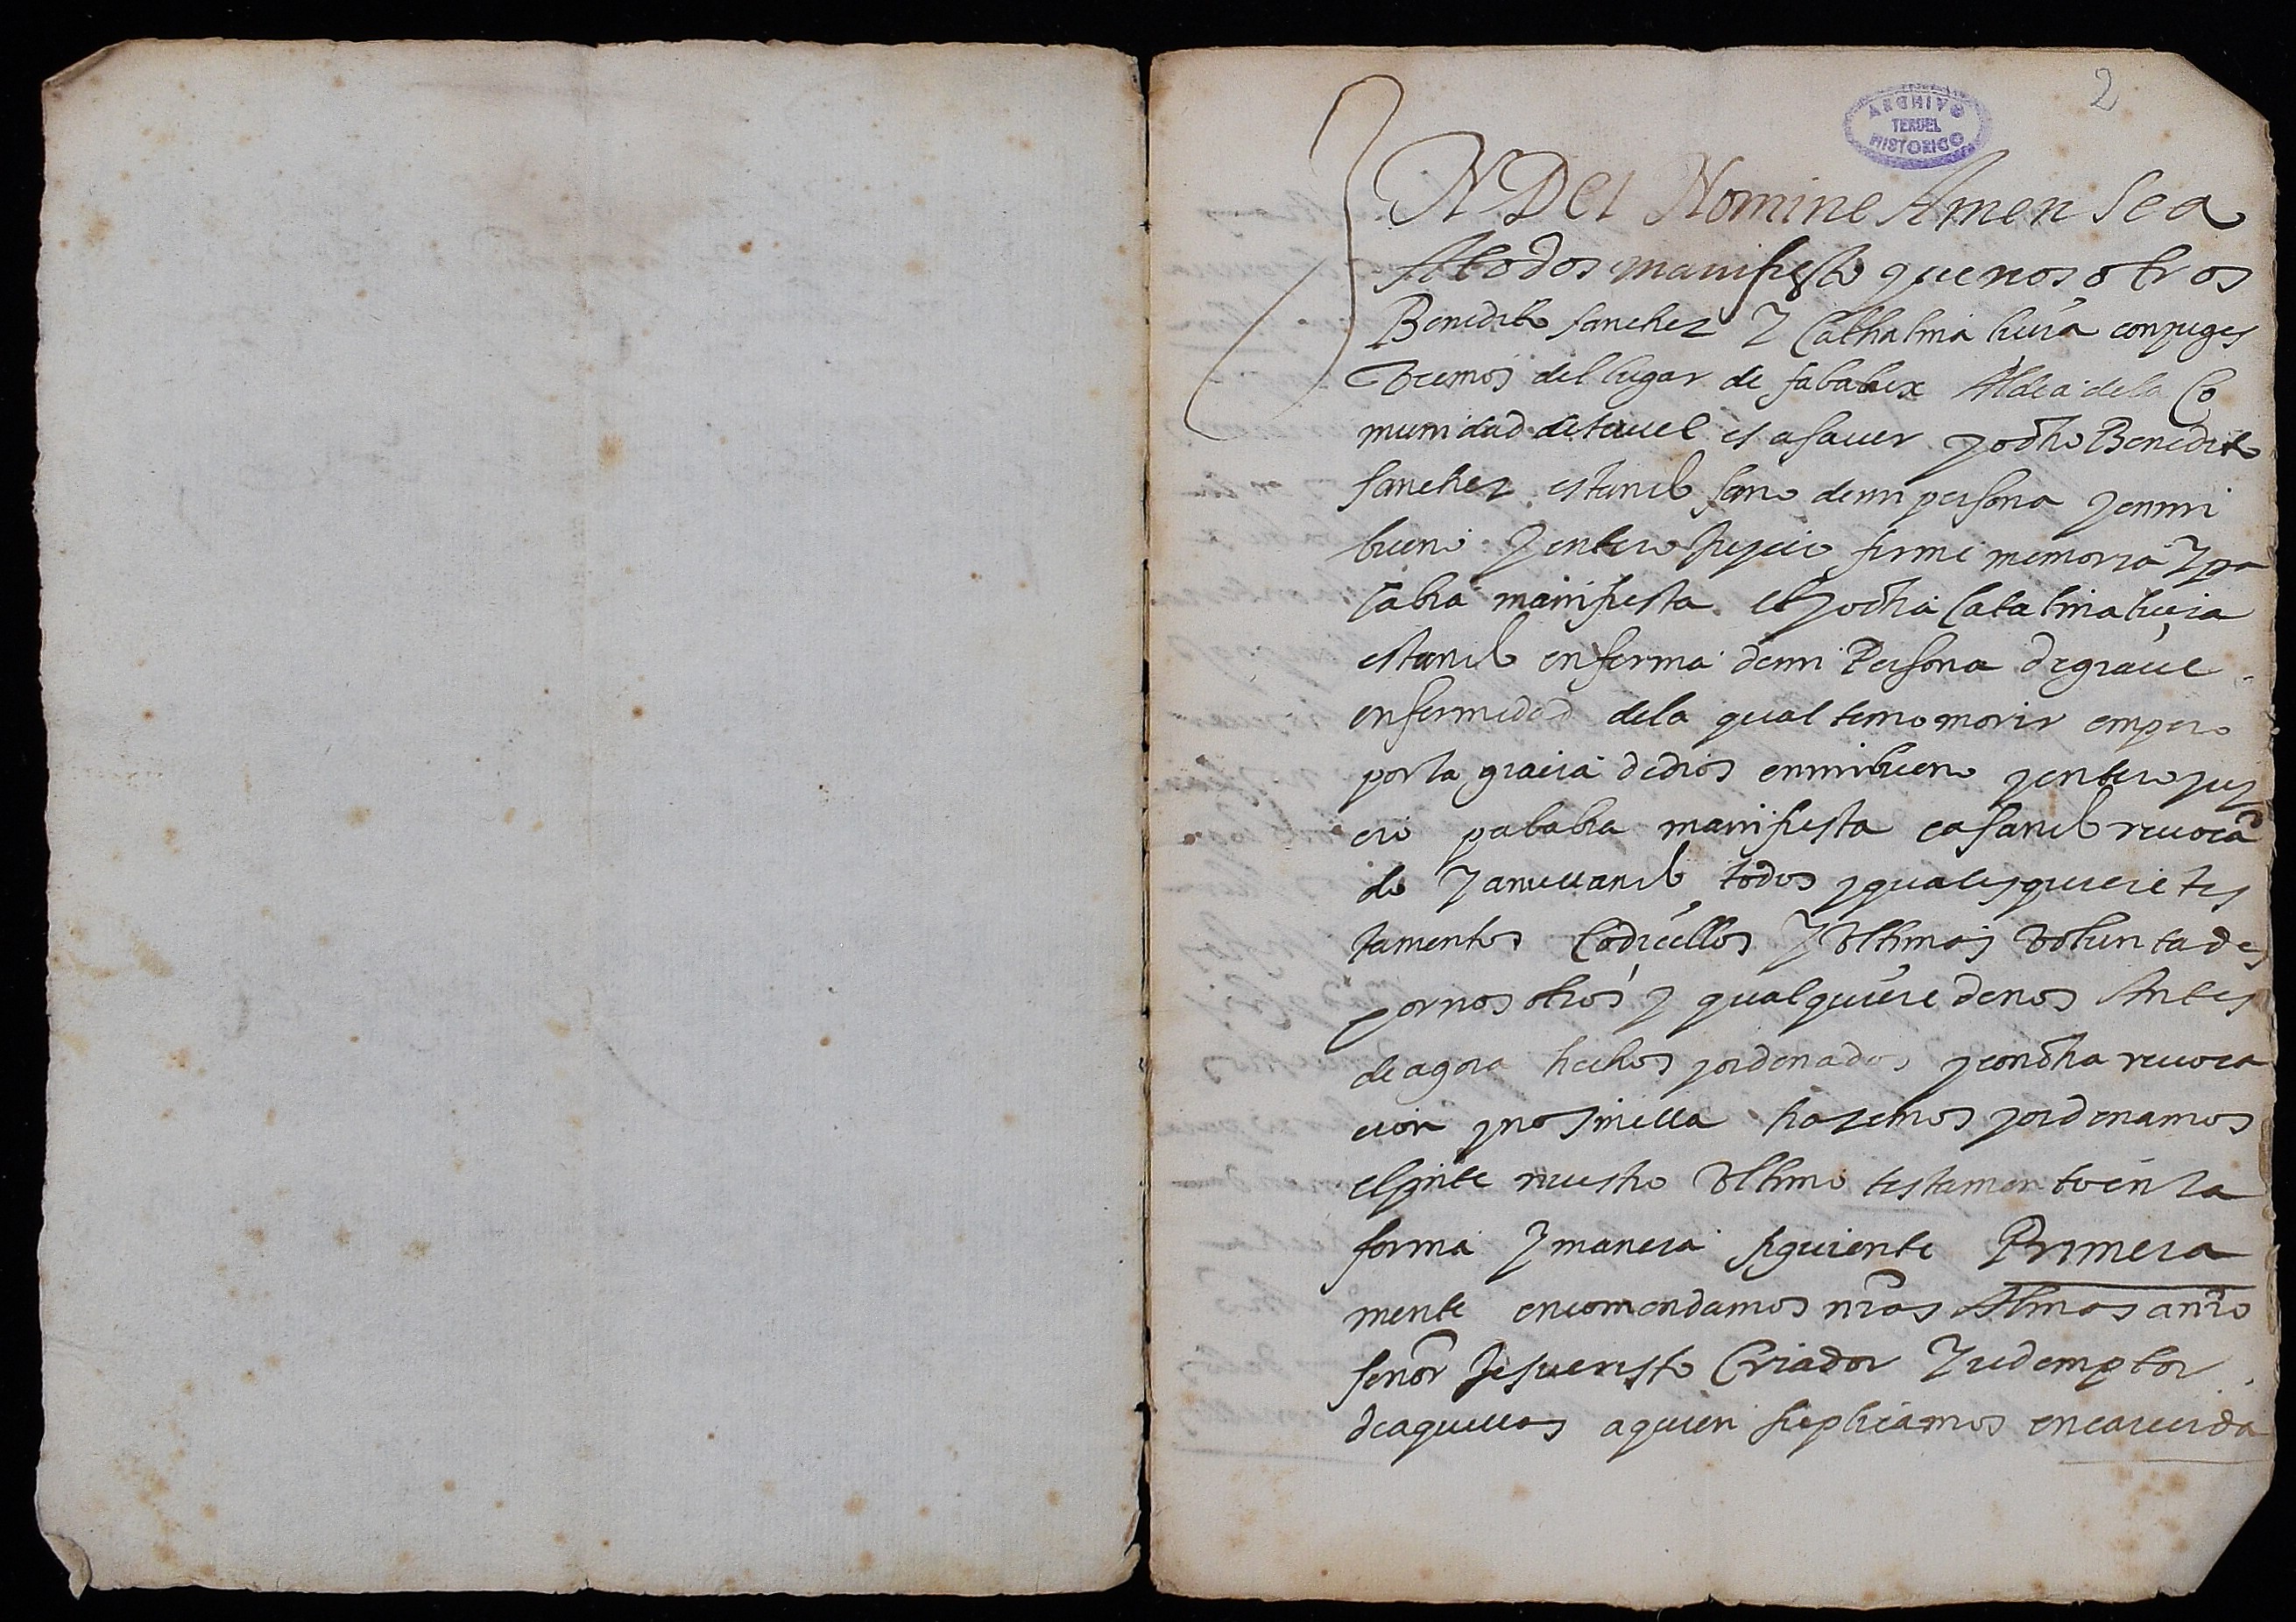 2
ARCHIVO
TERUEL
HISTORICO
IN Dei Nomine Amen Sea
A todos manifiesto que nosotros
Benedito sanchez Y Cathalina lucia conjuges
Vecinos del lugar de fababux Aldea de la Co
munidad de teruel es a sauer yo dho Benedito
sanchez estando sano de mi persona y en mi
bueno Y entero Juycio firme memoria Y pa
labra manifiesta et yo dha Catalina lucia
estando enferma de mi Persona de graue
enfermedad de la qual temo morir empero
por la gracia de dios en mi bueno y entero juy
cio palabra manifiesta casando reuocan
do Y anullando todos y qualesquiere tes
tamentos Codicellos Y Vltimas Voluntades
por nosotros y qualquiere de nos Antes
de agora hechos y ordenados y con dha reuoca
cion y no sin ella hazemos y ordenamos
el pnte nuestro Vltimo testamento en la
forma Y manera siguiente Primera
mente encomendamos nras Almas a nro
señor Jesucristo Criador Y redemptor
de aquellas a quien suplicamos encarecida